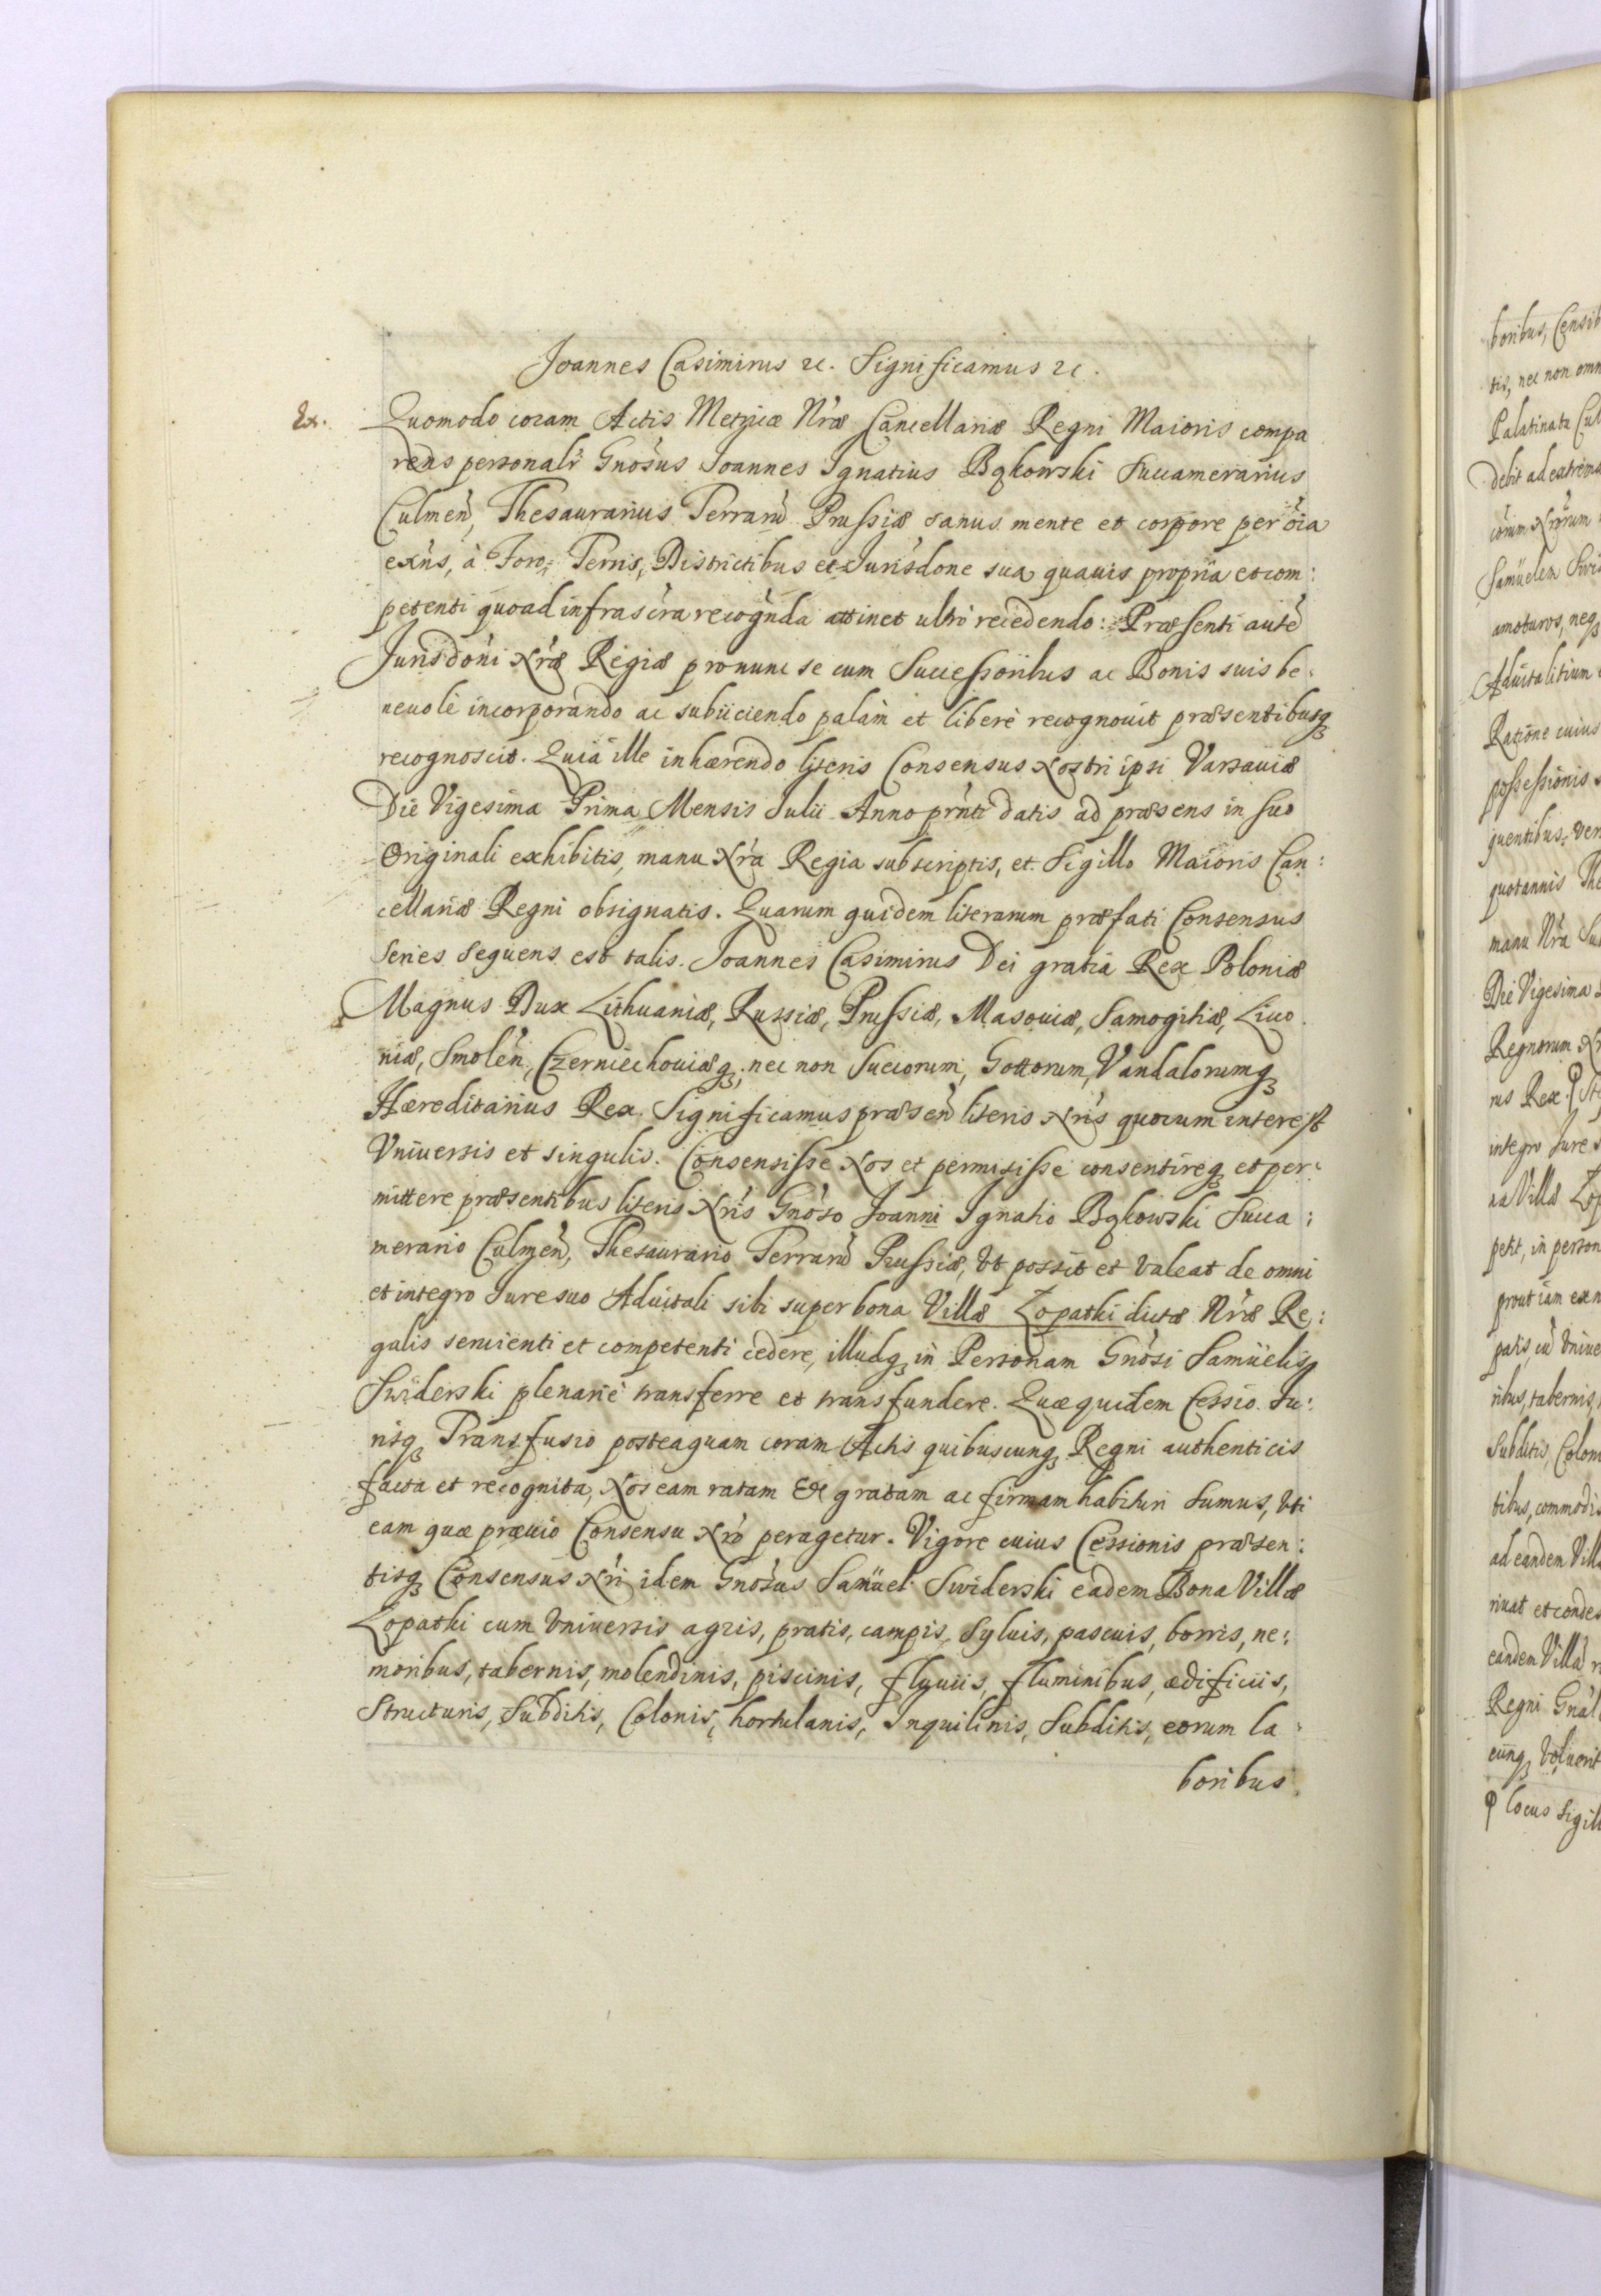 Joannes Casimirus &c. Significamus &c.
Ex. Quomodo coram Actis Metricæ Nræ Cancellariæ Regni Maioris compa
rens personalr Gnosus Joannes Ignatius Bąkowski Succamerarius
Culmen, Thesaurarius Terraru Prussiæ sanus mente et corpore per oia
exns, à Foro, Terris, Districtibus et Jurisdone sua quauis propria et com:
petenti quoad infrascra recognda attinet ultrò recedendo: Præsenti autē
Jurisdoni Nræ Regiæ pro nunc se cum Successoribus ac Bonis suis be:
neuolè incorporando ac subiiciendo palàm et liberè recognouit præsentibusq
recognoscit. Quia ille inhærendo literis Consensus Nostri ipsi Varsauiæ
Die Vigesima Prima Mensis Julii Anno prnti datis ad præsens in suo
Originali exhibitis, manu Nra Regia subscriptis, et Sigillo Maioris Can:
cellariæ Regni obsignatis. Quarum quidem literarum præfati Consensus
Series seguens est talis. Joannes Casimirus Dei gratia Rex Poloniæ
Magnus Dux Lithuaniæ, Russiæ, Prussiæ, Masouiæ, Samogitiæ, Liuo
niæ, Smolen, Czerniechouiæq, nec non Suecorum, Gottorum, Vandalorumq
Hæreditarius Rex. Significamus præsen literis Nris quorum interest
Vniuersis et singulis. Consensisse Nos et permisisse consentireq et per:
mittere præsentibus literis Nris Gnoso Joanni Ignatio Bąkowski Succa:
merario Culmen, Thesaurario Terraru Prussiæ, Vt possit et valeat de omni
et integro Jure suo Aduitali sibi super bona Villæ Lopatki dictæ Nræ Re:
galis seruienti et competenti cedere, illudq in Personam Gnosi Samüelis
Swiderski plenariè transferre et transfundere. Quæ quidem Cessio Ju:
risq Transfusio posteaquam coram Actis quibuscunq Regni authenticis
facta et recognita, Nos eam ratam & gratam ac firmam habituri sumus, Vti
eam quæ præuio Consensu Nro peragetur. Vigore cuius Cessionis præsen:
tisq Consensus Nri idem Gnosus Samüel Swiderski eadem Bona Villæ
Lopatki cum Vniuersis agris, pratis, campis, Syluis, pascuis, borris, ne:
moribus, tabernis, molendinis, piscinis, fluuiis, fluminibus, ædificiis,
Structuris, Subditis, Colonis, hortulanis, Inquilinis, Subditis, eorum la:
boribus